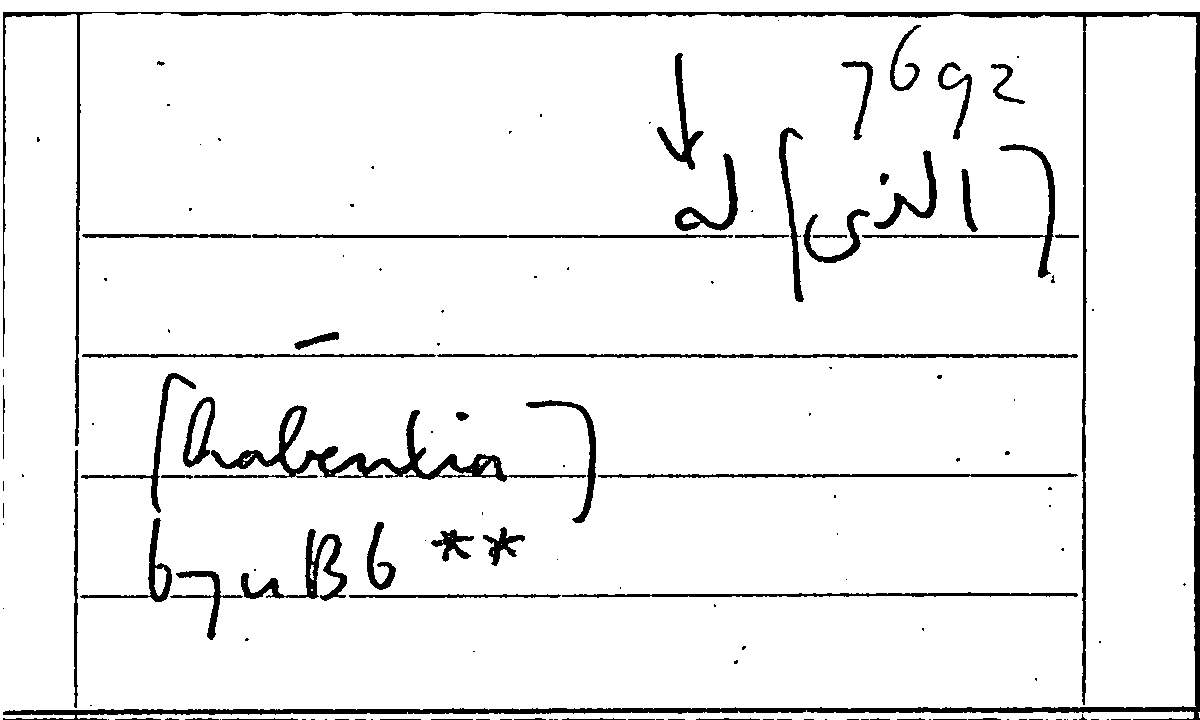 7692
[التي] له
[habentia]
67 u B 6 **